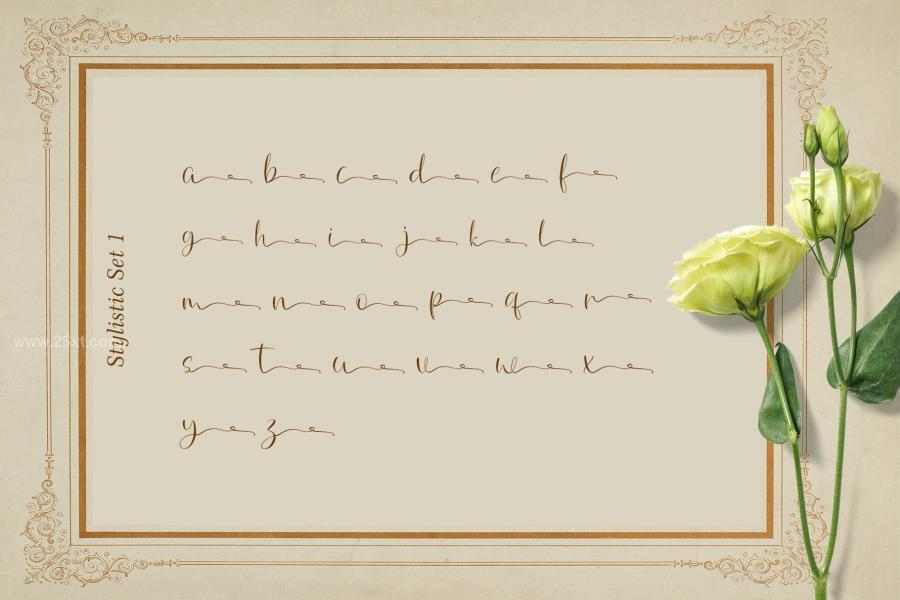 a b c d e f
g h i j k l
m n o p q r
s t u v w x
y z
Stylistic Set 1
www.25xt.com